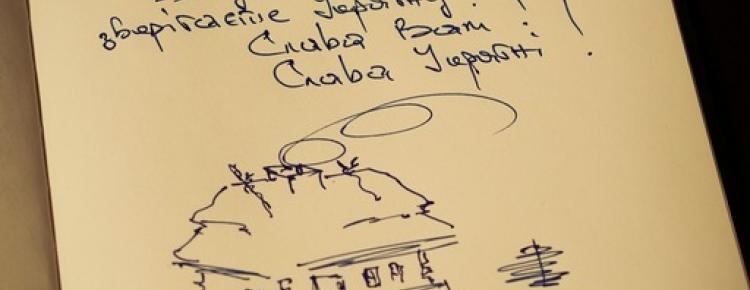 зберігаєте Україну!
Слава Вам!
Слава Україні!